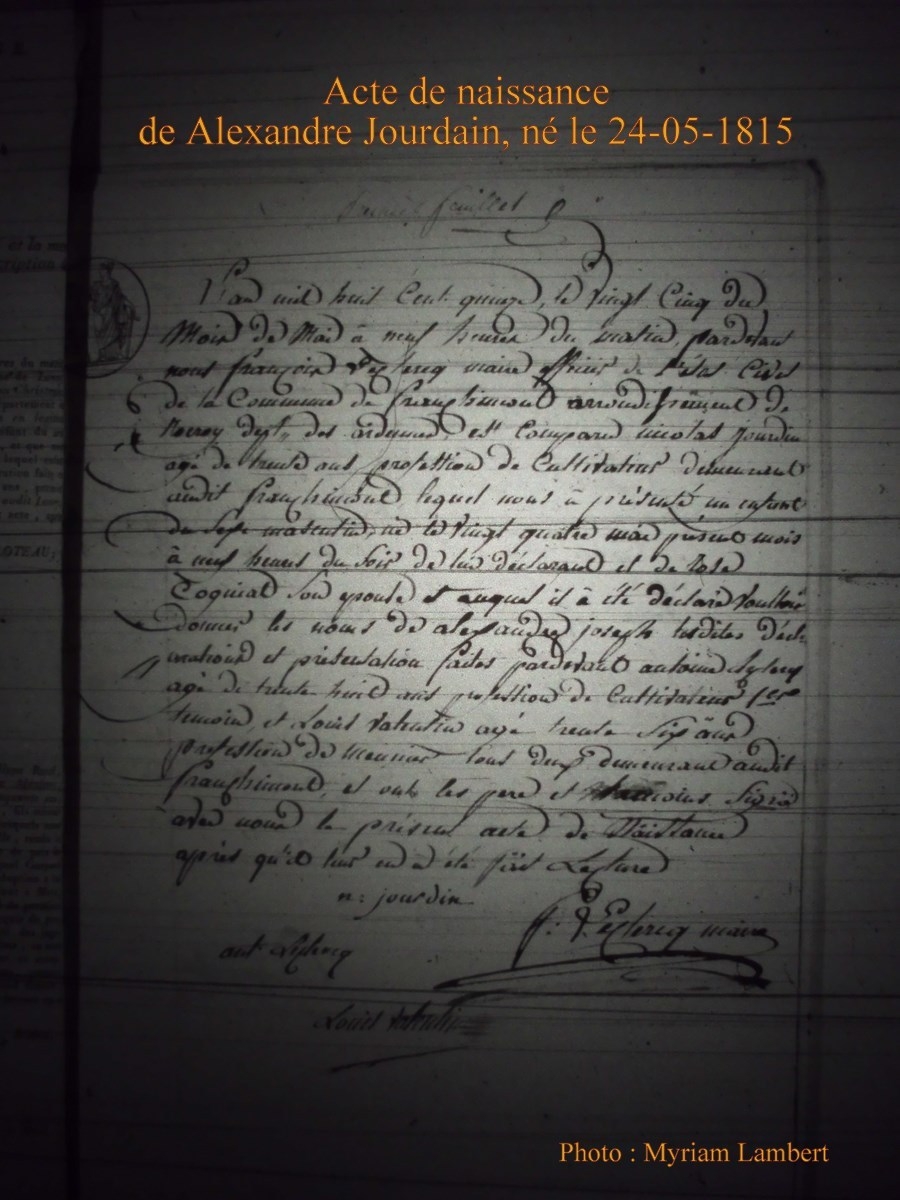 Acte de naissance
de Alexandre Jourdain, né le 24-05-1815
feuillet
L'an mil huit Cent quinze, le vingt Cinq du
Mois de Mai à neuf heures du matin, pardevant
nous françois maire officier de l'état Civil
de la Commune de franchimont arrondissement de
Rocroy dept. des ardennes, est Comparu nicolas jourdin
agé de trente ans profession de Cultivateur demeurant
audit franchimont lequel nous à présenté un enfant
du sexe masculin, né le vingt quatre mai présent mois
à neuf heures du soir de lui déclarant et de rose
son epouse et auquel il à été déclaré vouloir
donner les noms de alexandre joseph lesdites décl-
arations et présentation faites pardevant antoine
agé de trente huit ans profession de Cultivateur 1er
temoin, et Louis valentin agé trente Six ans
profession de meunier tous deux demeurant audit
franchimont, et ont les pere et temoins Signé
avec nous le présent acte de Naissance
après qu'il leur en a été fait Lecture
n: jourdin
maire
ant.
Louis valentin
Photo : Myriam Lambert